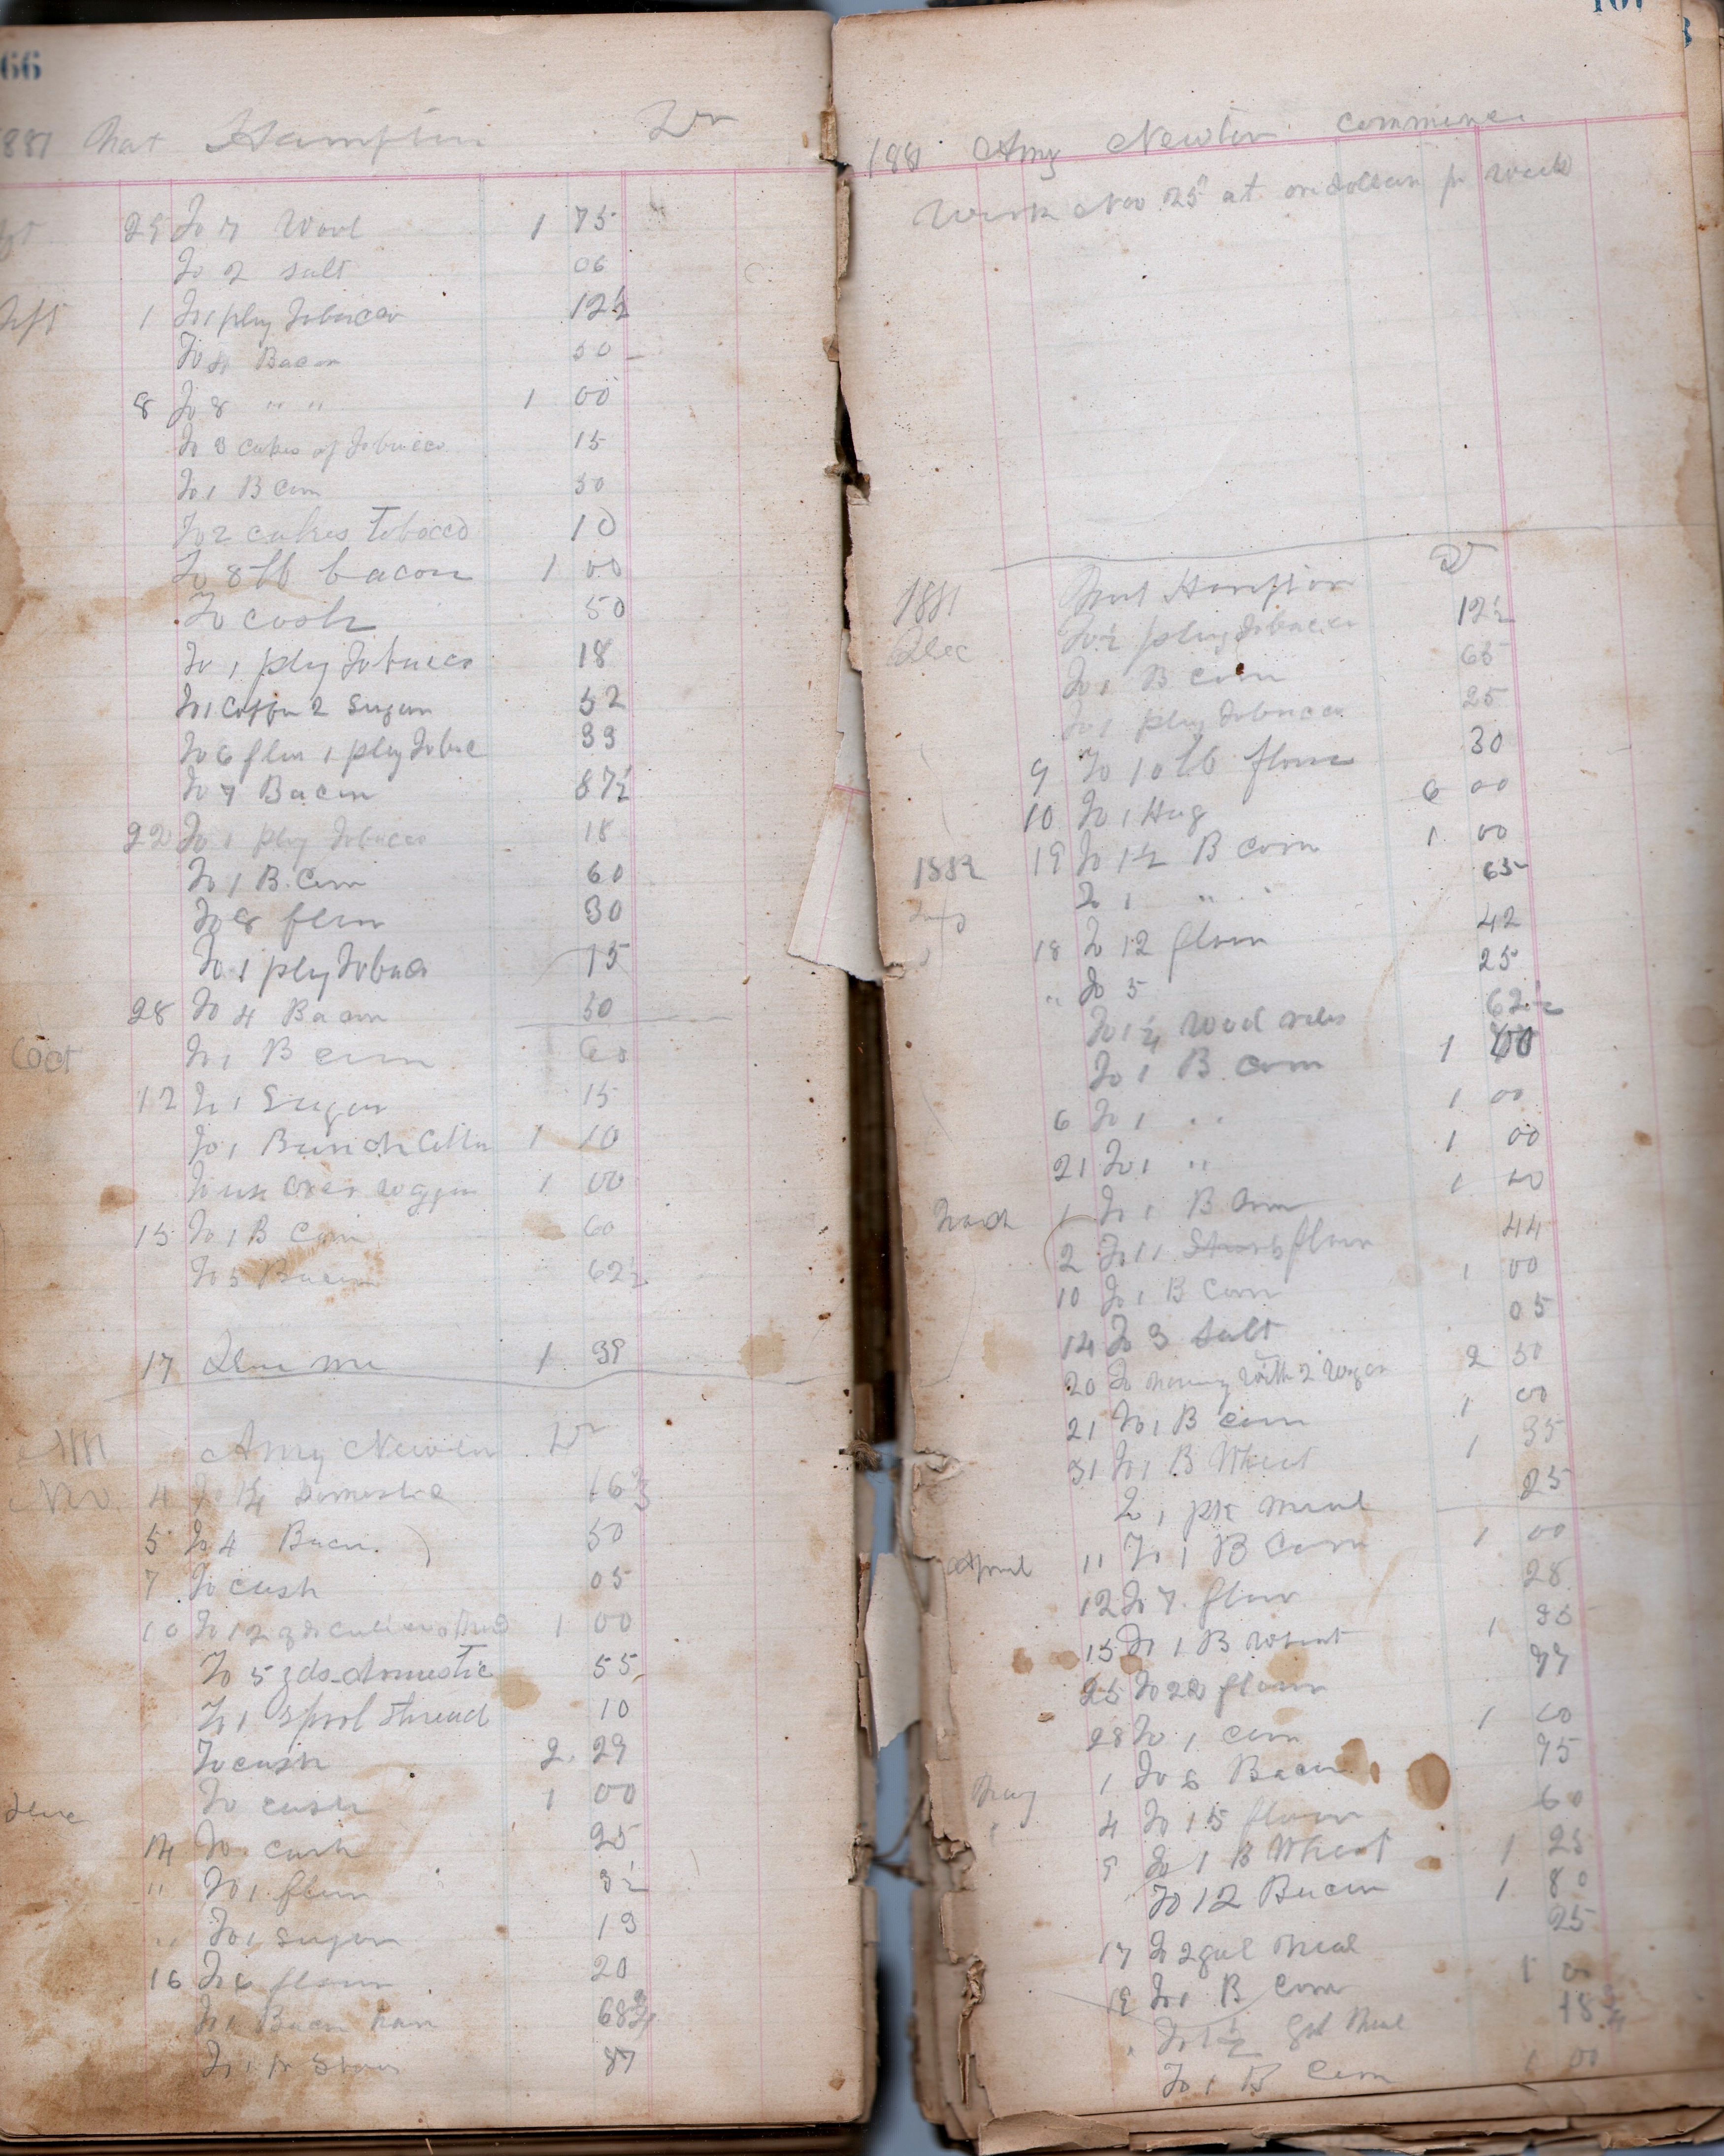 66
1881 Nat Hampton Dr
25 To 7 Wool 1 75
To 2 salt 06
Sept 1 To 1 plug Tobacco 12½
To 4 Bacon 50
8 To 8 " " 1 00
To 3 cakes of Tobacco 15
To 1 B Corn 50
To 2 cakes Tobacco 10
To 8 lb bacon 1 00
To cash 50
To 1 plug Tobacco 18
To 1 Coffee 2 Sugar 52
To 6 flour 1 plug Tobac 39
To 7 Bacon 87½
22 To 1 plug Tobacco 18
To 1 B. Corn 60
To 8 flour 30
To 1 plug Tobaco 15
28 To 4 Bacon 50
Oct To 1 B corn 60
12 To 1 Sugar 15
To 1 Bunch Cotton 1 10
To use Over Waggon 1 00
15 To 1 B Corn 60
To 5 Bacon 62½
17 Due me 1 39
1881 Amy Newton Dr
Nov. 4 Domestic 16
5 To 4 Bacon 50
7 To cash 05
10 To 12 yds 1 00
To 5 yds domestic 55
To 1 Spool thread 10
To cash 2 29
To cash 1 00
Dec 14 To cash 25
" To 1 flour 3½
" To 1 Sugar 13
16 To 6 flour 20
To 1 Bacon ham 68¾
To 1 pr Shoes 87
107
1881 Amy Newton commence
Work Nov 25 at one dollar pr week
1881 Nat Hampton Dr
Dec To ½ plug Tobacco 12½
To 1 B corn 65
To 1 plug Tobacco 25
9 To 10 lb flour 30
10 To 1 Hog 6 00
19 To 1½ B corn 1 00
1882 To 1 " 65
18 To 12 flour 42
" To 5 25
To 1¼ Wool roles 62½
To 1 B. Corn 1 00
6 To 1 " 1 00
21 To 1 " 1 00
March 1 To 1 B Corn 1 00
2 To 11 flour 44
10 To 1 B Corn 1 00
14 To 3 Salt 05
20 To moving with 2 Wagon 2 50
21 To 1 B corn 1 00
31 To 1 B Wheat 1 35
To 1 pk meal 25
April 11 To 1 B Corn 1 00
12 To 7 flour 28
15 To 1 B Wheat 1 35
25 To 22 flour 77
28 To 1 corn 1 00
May 1 To 6 Bacon 75
4 To 15 flour 60
9 To 1 B Wheat 1 25
To 12 Bacon 1 80
17 To 2 gal Meal 25
19 To 1 B Corn 1 00
" To 1½ gal Meal 18¾
To 1 B Corn 1 00